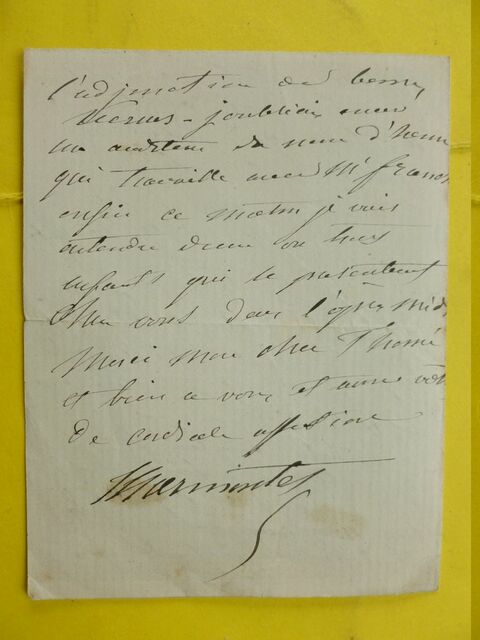 l'adjonction de
Vernes - j'oubliais aussi
un auditeur du nom d'
qui travaille avec Mr Franck
enfin ce matin je vais
entendre deux ou trois
enfants qui se présentent
chez vous dans l'après midi
Merci mon cher Thomé
et bien à vous et
de cordiale affection
Marmontel